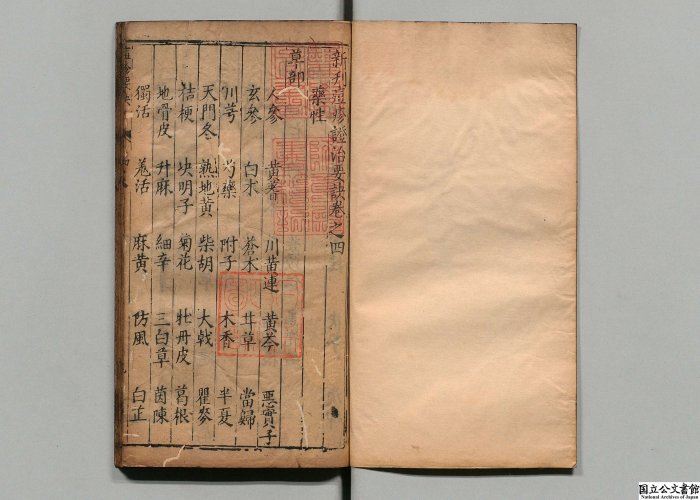 新刋痘疹證治要訣卷之四
藥性
草部
人參 黃耆 川黃連 黃芩 惡實子
玄參 白术 蒼术 甘草 當歸
川芎 芍藥 附子 木香 半夏
天門冬 熟地黃 柴胡 大戟 瞿麥
桔梗 决明子 菊花 牡丹皮 葛根
地骨皮 升麻 細辛 三白草 茵陳
獨活 羗活 麻黃 防風 白芷
国立公文書館
National Archives of Japan